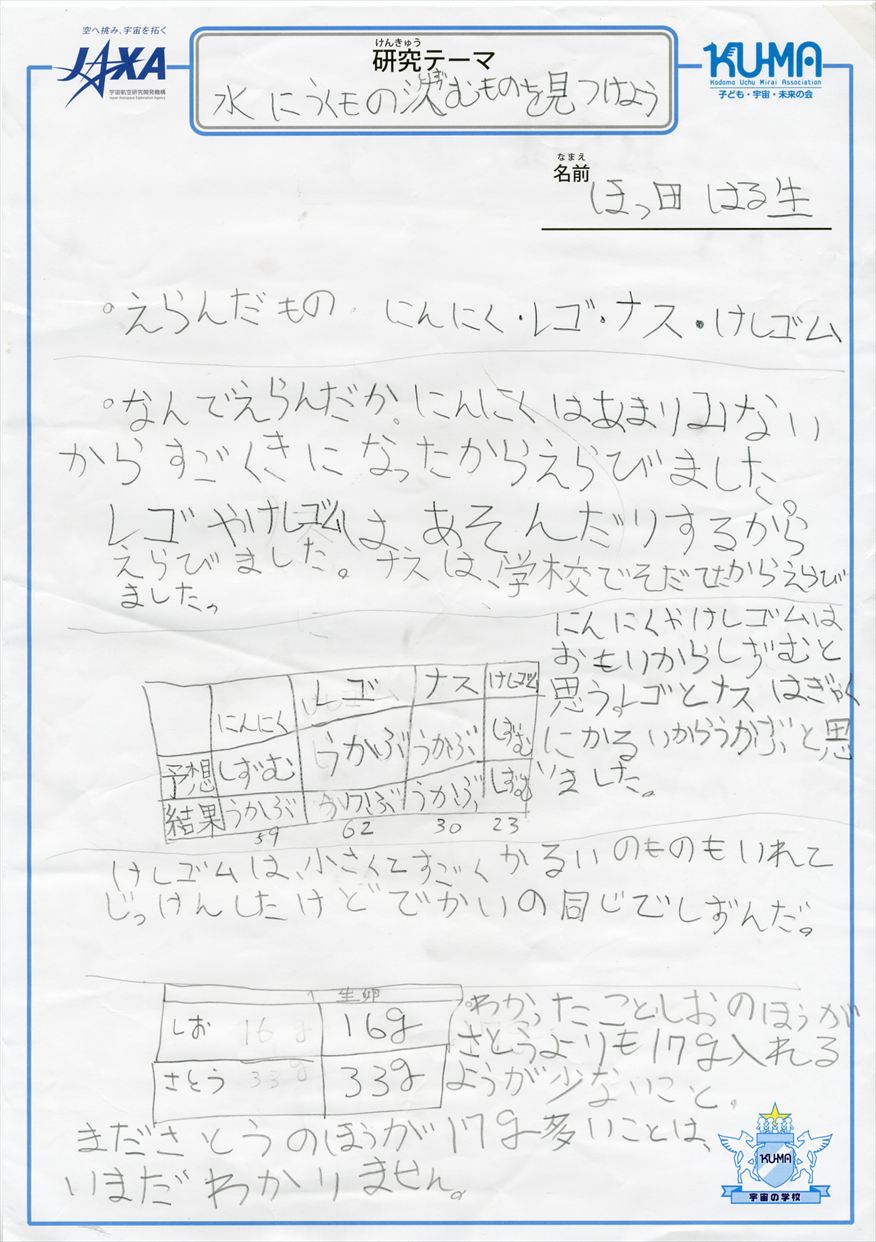 空へ挑み、宇宙を拓く
JAXA
宇宙航空研究開発機構
Japan Aerospace Exploration Agency
けんきゅう
研究テーマ
水にうくもの沈むものを見つけよう
KU-MA
Kodomo Uchu Mirai Association
子ども・宇宙・未来の会
なまえ
名前
ほっ田 はる生
えらんだもの にんにく・レゴ・ナス・けしゴム
なんでえらんだか。にんにくはあまり
ない
からすごくきになったからえらびました。
レゴやけしゴムは、あそんだりするから
えらびました。ナスは、学校でそだてたからえらび
ました。
にんにくやけしゴムは
おもいからしずむと
思う。レゴとナスはぎゃく
にかるいからうかぶと思
いました。
にんにく レゴ ナス けしゴム
予想 しずむ うかぶ うかぶ しずむ
結果 うかぶ うかぶ うかぶ しずむ
59 62 30 23
けしゴムは、小さくてすごくかるいのものもいれて
じっけんしたけどでかいの同じでしずんだ。
生卵
しお 16g 16g
さとう 33g 33g
わかったことしおのほうが
さとうよりも17g入れる
ようが少ないこと。
まださとうのほうが17g多いことは、
いまだわかりません。
KUMA
宇宙の学校